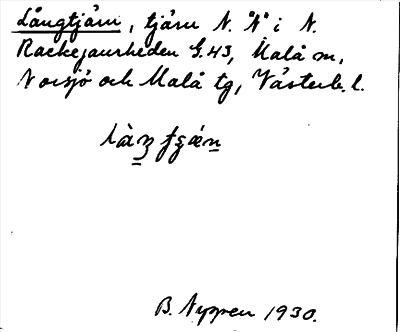 Långtjärn, tjärn N. Å i N.
Rackejaurheden G.43, Malå sn,
Norsjö och Malå tg, Västerb. l.
B. Nygren 1930.